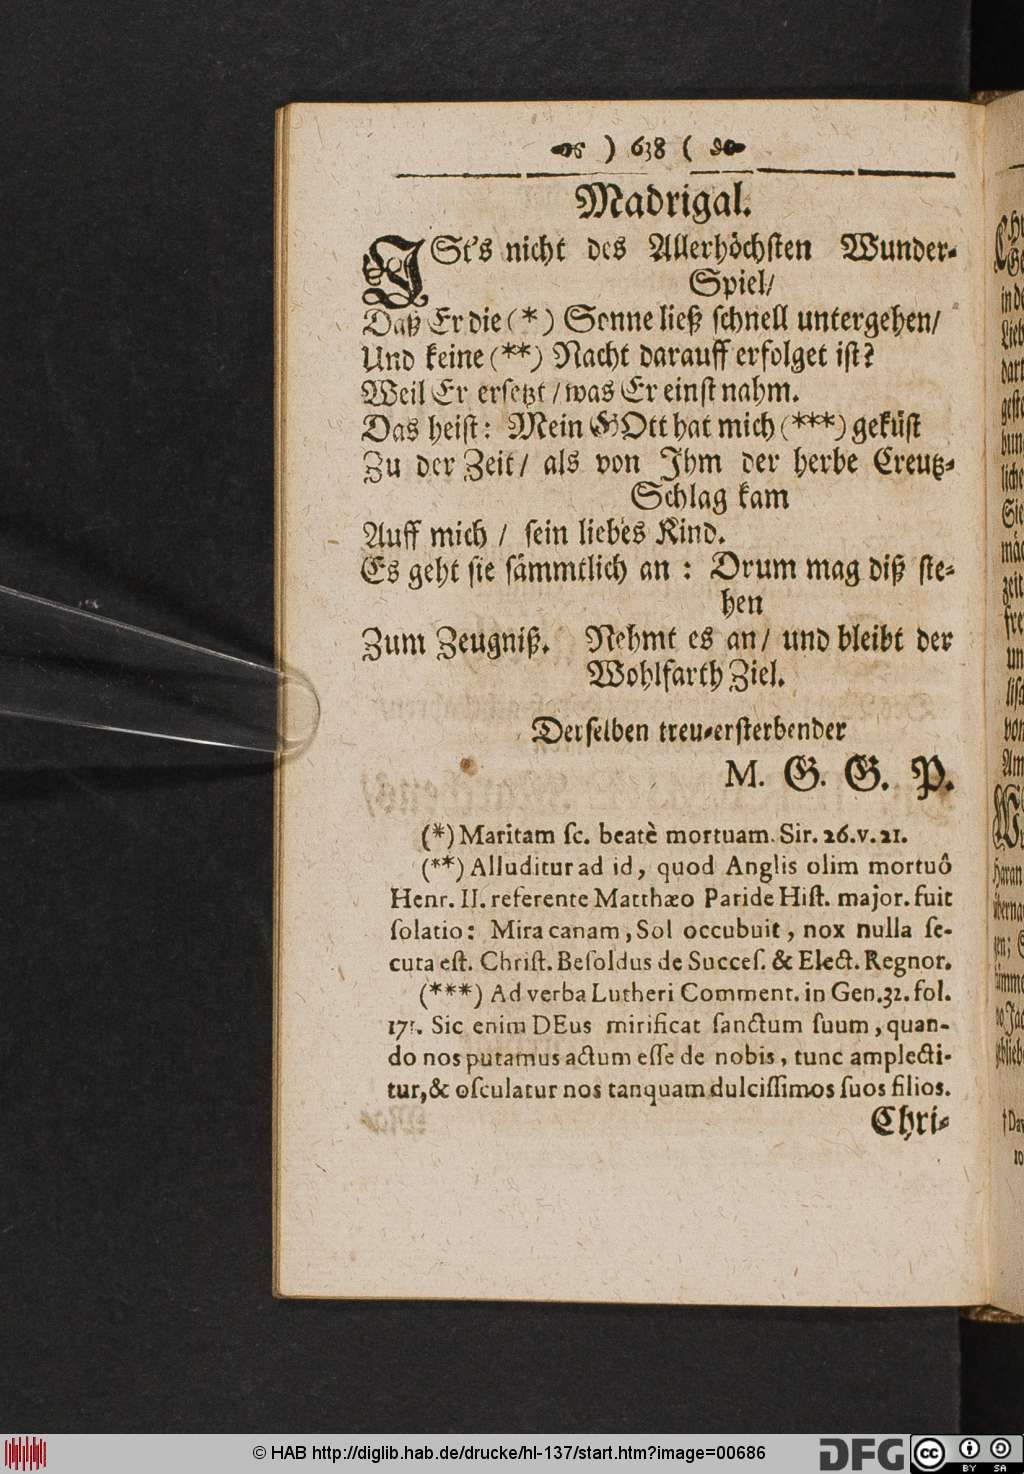 ) 638 (
Madrigal.
ISt's nicht des Allerhöchsten Wunder-
Spiel/
Daß Er die (*) Sonne ließ schnell untergehen/
Und keine (**) Nacht darauff erfolget ist?
Weil Er ersetzt / was Er einst nahm.
Das heist: Mein GOtt hat mich (***) geküst
Zu der Zeit / als von Ihm der herbe Creutz-
Schlag kam
Auff mich / sein liebes Kind.
Es geht sie sämmtlich an : Drum mag diß ste-
hen
Zum Zeugniß. Nehmt es an / und bleibt der
Wohlfarth Ziel.
Derselben treu-ersterbender
M. G. G. P.
(*) Maritam sc. beatè mortuam. Sir. 26. v. 21.
(**) Alluditur ad id, quod Anglis olim mortuô
Henr. II. referente Matthæo Paride Hist. major. fuit
solatio: Mira canam, Sol occubuit, nox nulla se-
cuta est. Christ. Besoldus de Succes. & Elect. Regnor.
(***) Ad verba Lutheri Comment. in Gen. 32. fol.
175. Sic enim DEus mirificat sanctum suum, quan-
do nos putamus actum esse de nobis, tunc amplecti-
tur, & osculatur nos tanquam dulcissimos suos filios.
Chri-
© HAB http://diglib.hab.de/drucke/hl-137/start.htm?image=00686
DFG
cc BY SA